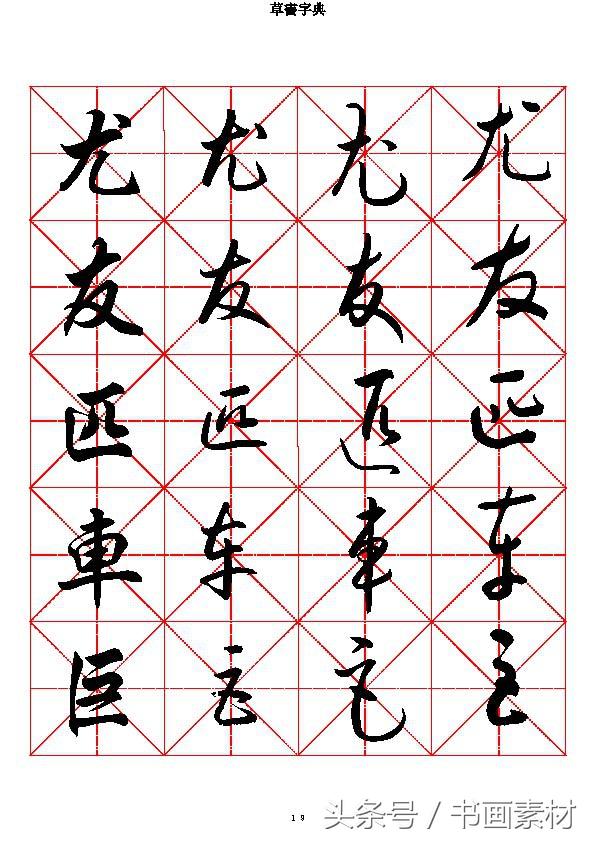 草書字典
尤尤尤尤
友友友友
匹匹匹匹
車车車车
巨巨巨巨
19
头条号 / 书画素材